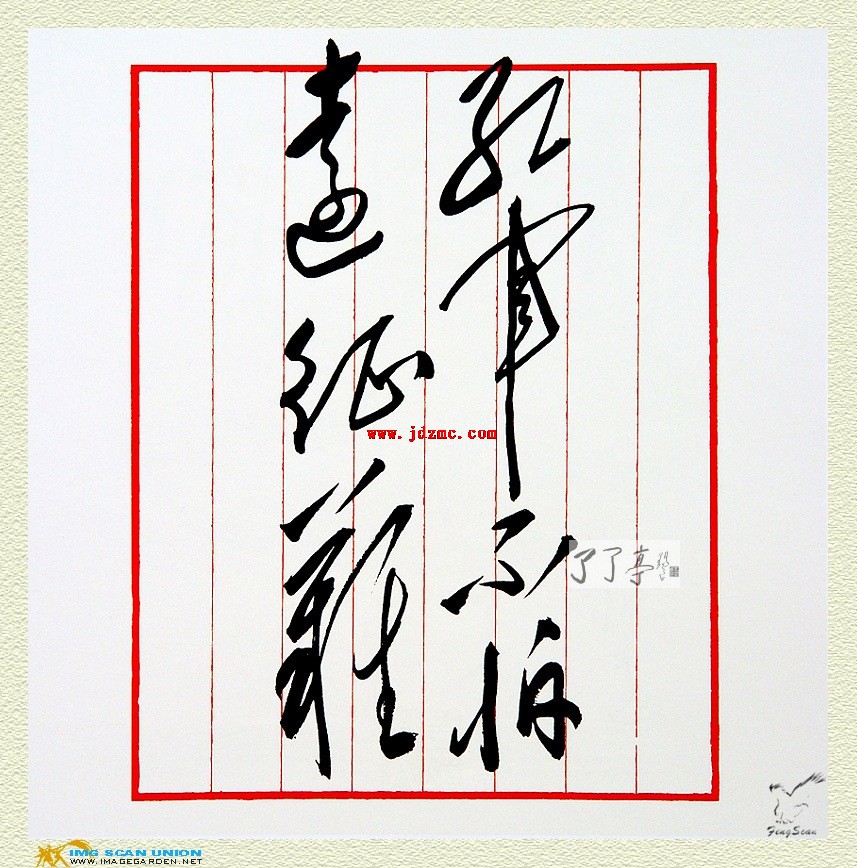 红军不怕
遠征難
www.jdzmc.com
了了亭
FengScan
IMG SCAN UNION
WWW.IMAGEGARDEN.NET